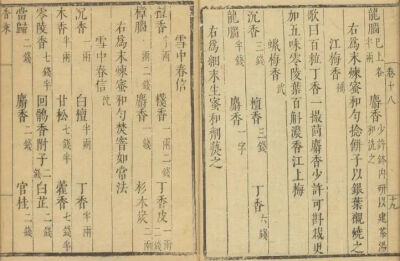 卷十八 十九
龍腦已上各半兩 麝香少許鉢內研以建茶湯和洗之
右為末煉蜜和勻捻餅子以銀葉襯燒之
江梅香 補
歌曰百粒丁香一撮茴麝香少許可斟裁更
加五味零陵葉百斛濃香江上梅
蠟梅香 武
沉香三錢 檀香三錢 丁香六錢
龍腦半錢 麝香一字
右為細末生蜜和劑爇之
雪中春信
檀香半兩 棧香一兩二錢 丁香皮一兩二錢
樟腦一兩二錢 麝香一錢 杉木炭二兩
右為末煉蜜和勻焚窨如常法
雪中春信 沈
沉香一兩 白檀半兩 丁香半兩
木香半兩 甘松七錢半 藿香七錢半
零陵香七錢半 回鶻香附子二錢 白芷二錢
當歸二錢 麝香二錢 官桂二錢
香乘